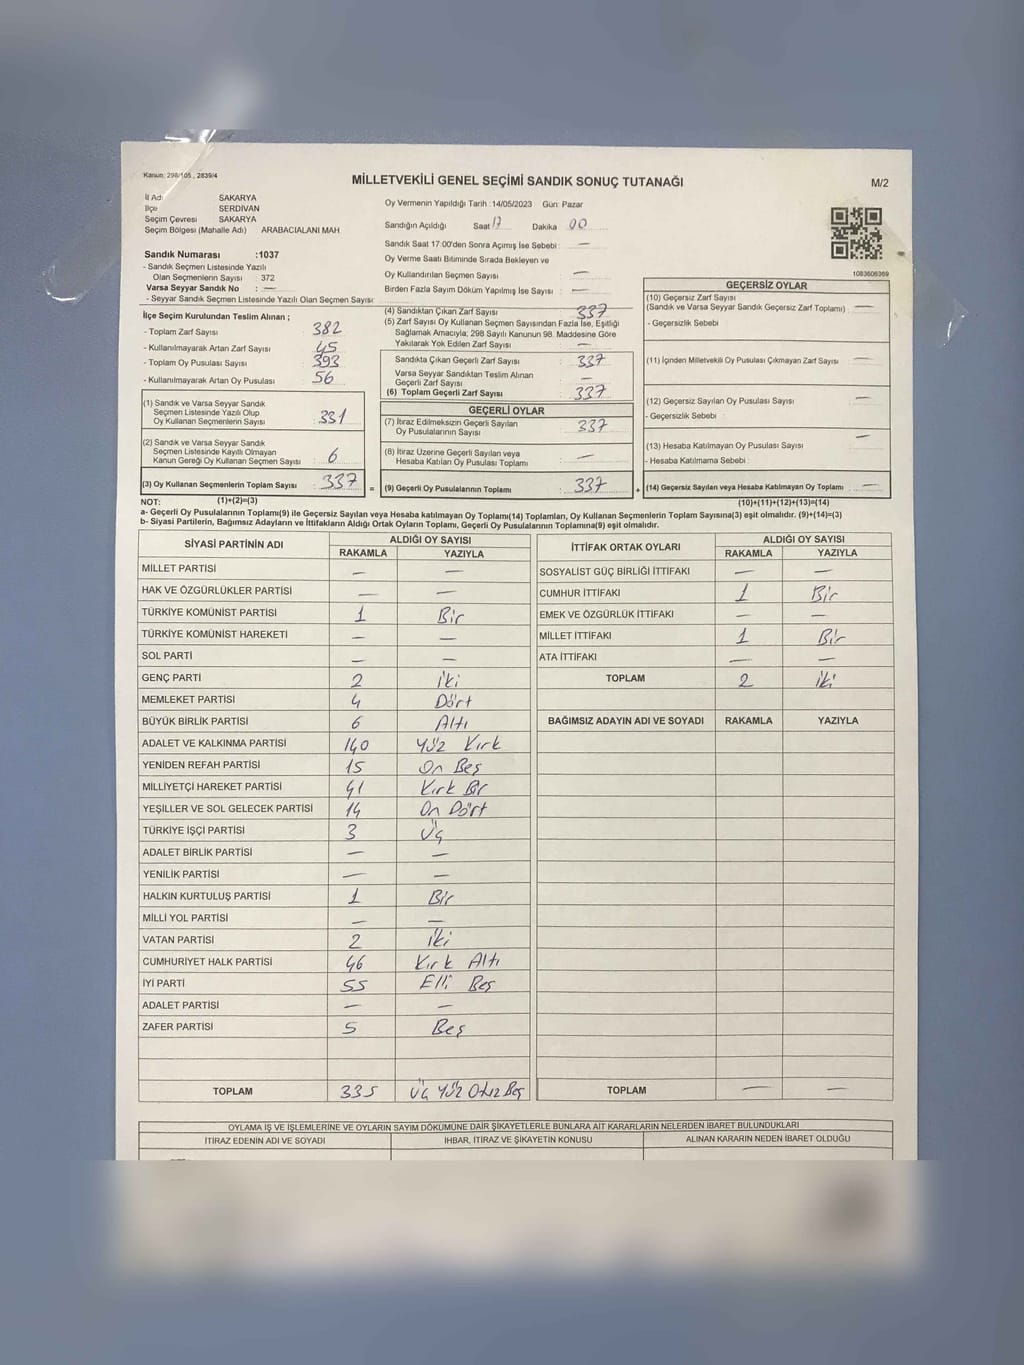 Kanun: 298/105 , 2839/4
MİLLETVEKİLİ GENEL SEÇİMİ SANDIK SONUÇ TUTANAĞI
M/2
İl Adı SAKARYA
İlçe SERDİVAN
Seçim Çevresi SAKARYA
Seçim Bölgesi (Mahalle Adı) ARABACIALANI MAH
Sandık Numarası :1037
- Sandık Seçmen Listesinde Yazılı
Olan Seçmenlerin Sayısı : 372
Varsa Seyyar Sandık No : —
- Seyyar Sandık Seçmen Listesinde Yazılı Olan Seçmen Sayısı:
İlçe Seçim Kurulundan Teslim Alınan ;
- Toplam Zarf Sayısı 382
- Kullanılmayarak Artan Zarf Sayısı 45
- Toplam Oy Pusulası Sayısı 393
- Kullanılmayarak Artan Oy Pusulası 56
(1) Sandık ve Varsa Seyyar Sandık
Seçmen Listesinde Yazılı Olup
Oy Kullanan Seçmenlerin Sayısı 331
(2) Sandık ve Varsa Seyyar Sandık
Seçmen Listesinde Kayıtlı Olmayan
Kanun Gereği Oy Kullanan Seçmen Sayısı : 6
(3) Oy Kullanan Seçmenlerin Toplam Sayısı : 337 =
Oy Vermenin Yapıldığı Tarih :14/05/2023 Gün: Pazar
Sandığın Açıldığı Saat 17 Dakika 00
Sandık Saat 17:00'den Sonra Açılmış İse Sebebi : —
Oy Verme Saati Bitiminde Sırada Bekleyen ve
Oy Kullandırılan Seçmen Sayısı : —
Birden Fazla Sayım Döküm Yapılmış İse Sayısı : —
(4) Sandıktan Çıkan Zarf Sayısı : 337
(5) Zarf Sayısı Oy Kullanan Seçmen Sayısından Fazla İse, Eşitliği
Sağlamak Amacıyla; 298 Sayılı Kanunun 98. Maddesine Göre
Yakılarak Yok Edilen Zarf Sayısı : —
Sandıkta Çıkan Geçerli Zarf Sayısı : 337
Varsa Seyyar Sandıktan Teslim Alınan
Geçerli Zarf Sayısı : —
(6) Toplam Geçerli Zarf Sayısı : 337
GEÇERLİ OYLAR
(7) İtiraz Edilmeksizin Geçerli Sayılan
Oy Pusulalarının Sayısı : 337
(8) İtiraz Üzerine Geçerli Sayılan veya
Hesaba Katılan Oy Pusulası Toplamı : —
(9) Geçerli Oy Pusulalarının Toplamı : 337 +
1083606369
GEÇERSİZ OYLAR
(10) Geçersiz Zarf Sayısı
(Sandık ve Varsa Seyyar Sandık Geçersiz Zarf Toplamı) : —
- Geçersizlik Sebebi
(11) İçinden Milletvekili Oy Pusulası Çıkmayan Zarf Sayısı : —
(12) Geçersiz Sayılan Oy Pusulası Sayısı : —
- Geçersizlik Sebebi :
(13) Hesaba Katılmayan Oy Pusulası Sayısı —
- Hesaba Katılmama Sebebi :
(14) Geçersiz Sayılan veya Hesaba Katılmayan Oy Toplamı : —
NOT: (1)+(2)=(3) (10)+(11)+(12)+(13)=(14)
a- Geçerli Oy Pusulalarının Toplamı(9) ile Geçersiz Sayılan veya Hesaba katılmayan Oy Toplamı(14) Toplamları, Oy Kullanan Seçmenlerin Toplam Sayısına(3) eşit olmalıdır. (9)+(14)=(3)
b- Siyasi Partilerin, Bağımsız Adayların ve İttifakların Aldığı Ortak Oyların Toplamı, Geçerli Oy Pusulalarının Toplamına(9) eşit olmalıdır.
SİYASİ PARTİNİN ADI ALDIĞI OY SAYISI
RAKAMLA YAZIYLA
MİLLET PARTİSİ — —
HAK VE ÖZGÜRLÜKLER PARTİSİ — —
TÜRKİYE KOMÜNİST PARTİSİ 1 Bir
TÜRKİYE KOMÜNİST HAREKETİ — —
SOL PARTİ — —
GENÇ PARTİ 2 iki
MEMLEKET PARTİSİ 4 Dört
BÜYÜK BİRLİK PARTİSİ 6 Altı
ADALET VE KALKINMA PARTİSİ 140 Yüz Kırk
YENİDEN REFAH PARTİSİ 15 On Beş
MİLLİYETÇİ HAREKET PARTİSİ 41 Kırk Bir
YEŞİLLER VE SOL GELECEK PARTİSİ 14 On Dört
TÜRKİYE İŞÇİ PARTİSİ 3 Üç
ADALET BİRLİK PARTİSİ — —
YENİLİK PARTİSİ — —
HALKIN KURTULUŞ PARTİSİ 1 Bir
MİLLİ YOL PARTİSİ — —
VATAN PARTİSİ 2 iki
CUMHURİYET HALK PARTİSİ 46 Kırk Altı
İYİ PARTİ 55 Elli Beş
ADALET PARTİSİ — —
ZAFER PARTİSİ 5 Beş
TOPLAM 335 Üç Yüz Otuz Beş
İTTİFAK ORTAK OYLARI ALDIĞI OY SAYISI
RAKAMLA YAZIYLA
SOSYALİST GÜÇ BİRLİĞİ İTTİFAKI — —
CUMHUR İTTİFAKI 1 Bir
EMEK VE ÖZGÜRLÜK İTTİFAKI — —
MİLLET İTTİFAKI 1 Bir
ATA İTTİFAKI — —
TOPLAM 2 iki
BAĞIMSIZ ADAYIN ADI VE SOYADI RAKAMLA YAZIYLA
TOPLAM — —
OYLAMA İŞ VE İŞLEMLERİNE VE OYLARIN SAYIM DÖKÜMÜNE DAİR ŞİKAYETLERLE BUNLARA AİT KARARLARIN NELERDEN İBARET BULUNDUKLARI
İTİRAZ EDENİN ADI VE SOYADI İHBAR, İTİRAZ VE ŞİKAYETİN KONUSU ALINAN KARARIN NEDEN İBARET OLDUĞU